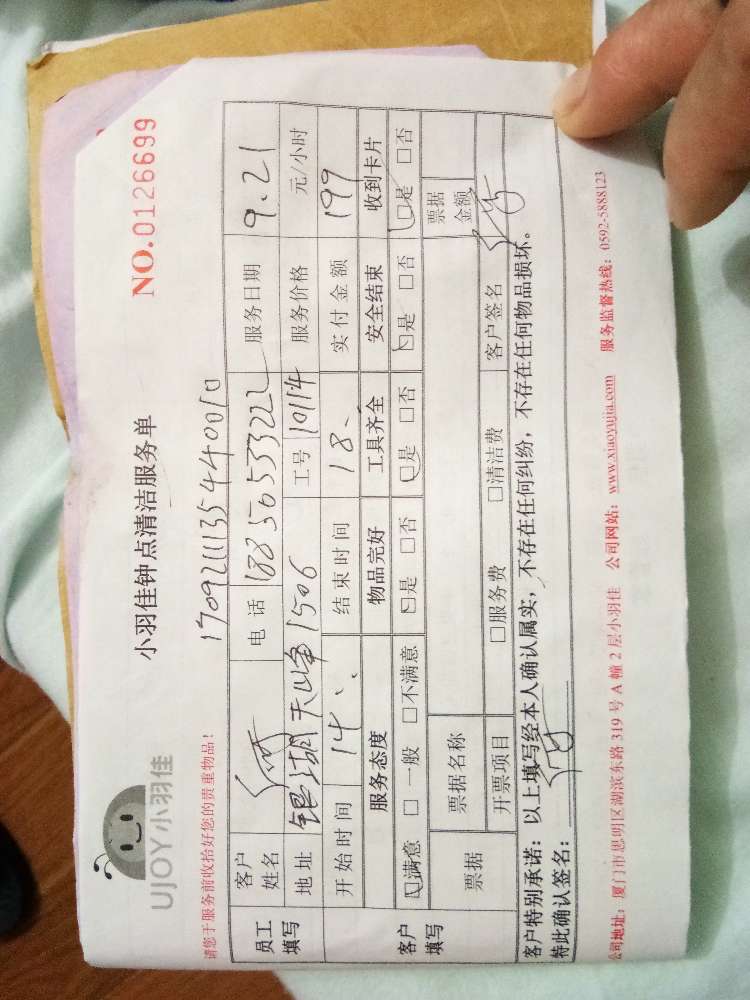 UJOY小羽佳
小羽佳钟点清洁服务单
NO.0126699
请您于服务前收拾好您的贵重物品!
1709211135440010
员工填写
客户姓名 电话 18856533222 服务日期 9.21
地址 银湖天峰1506 工号 10114 服务价格 元/小时
开始时间 14、 结束时间 18、 实付金额 199
客户填写
服务态度 物品完好 工具齐全 安全结束 收到卡片
☑满意 □一般 □不满意 ☑是 □否 ☑是 □否 ☑是 □否 ☑是 □否
票据 票据名称 票据金额
开票项目 □服务费 □清洁费 客户签名
客户特别承诺:以上填写经本人确认属实,不存在任何纠纷,不存在任何物品损坏。
特此确认签名:
公司地址:厦门市思明区湖滨东路319号A幢2层小羽佳 公司网站:www.xiaoyujia.com 服务监督热线:0592-5888123